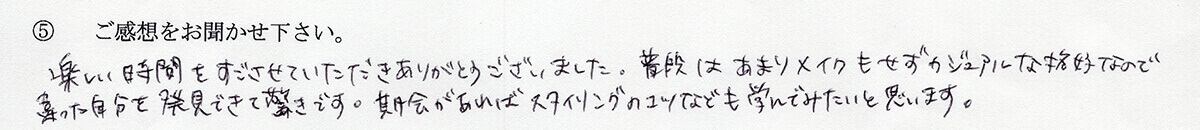 ⑤ ご感想をお聞かせ下さい。
楽しい時間をすごさせていただきありがとうございました。普段はあまりメイクもせずカジュアルな格好なので
違った自分を発見できて驚きです。機会があればスタイリングのコツなども学んでみたいと思います。